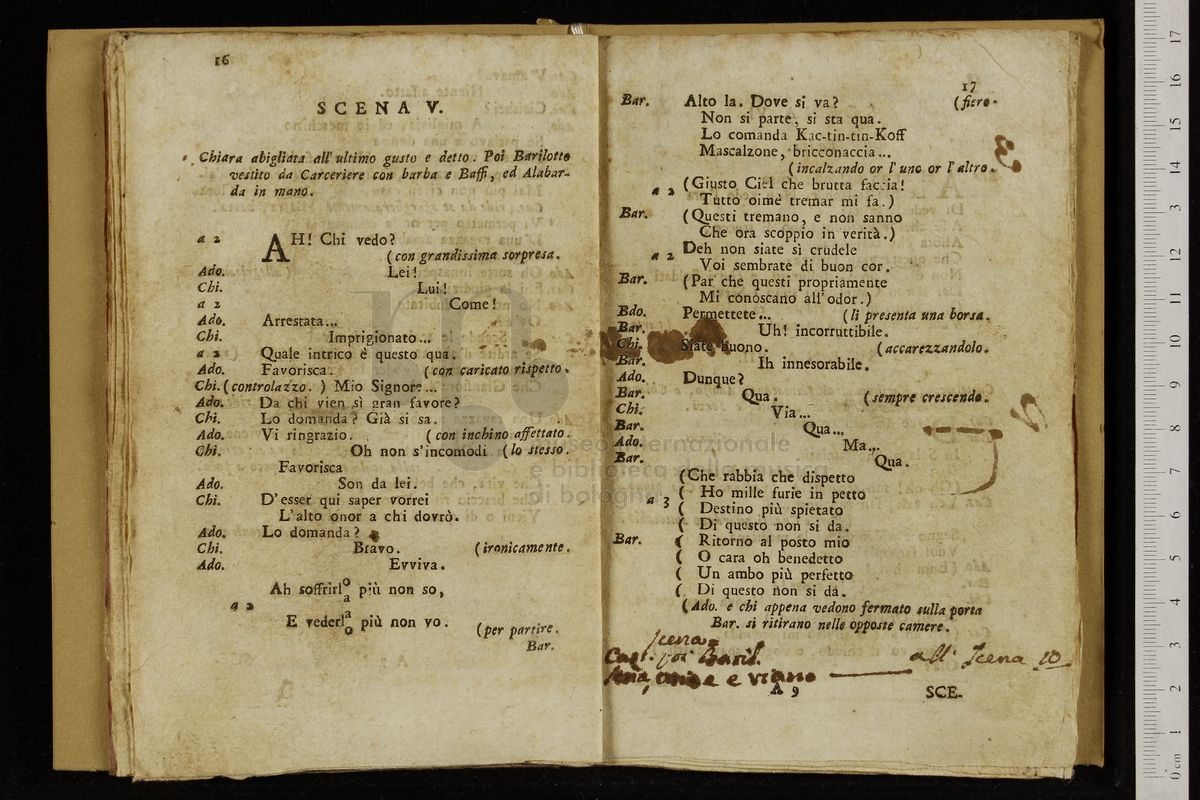 16
SCENA V.
Chiara abigliata all' ultimo gusto e detto. Poi Barilotto
vestito da Carceriere con barba e Baffi, ed Alabar-
da in mano.
a 2 AH! Chi vedo?
(con grandissima sorpresa.
Ado. Lei!
Chi. Lui!
a 2 Come!
Ado. Arrestata...
Chi. Imprigionato...
a 2 Quale intrico è questo qua.
Ado. Favorisca. (con caricato rispetto.
Chi. (controlazzo.) Mio Signore...
Ado. Da chi vien sì gran favore?
Chi. Lo domanda? Già si sa.
Ado. Vi ringrazio. (con inchino affettato.
Chi. Oh non s'incomodi (lo stesso.
Favorisca
Ado. Son da lei.
Chi. D'esser qui saper vorrei
L'alto onor a chi dovrò.
Ado. Lo domanda?
Chi. Bravo. (ironicamente.
Ado. Evviva.
Ah soffrirl o/a più non so,
a 2
E vederl a/o più non vo.
(per partire.
Bar.
17
Bar. Alto la. Dove si va? (fiero.
Non si parte, si sta qua.
Lo comanda Kac-tin-tin-Koff
Mascalzone, bricconaccia...
(incalzando or l'uno or l'altro.
3
a 2 (Giusto Ciel che brutta faccia!
Tutto oimè tremar mi fa.)
Bar. (Questi tremano, e non sanno
Che ora scoppio in verità.)
a 2 Deh non siate sì crudele
Voi sembrate di buon cor.
Bar. (Par che questi propriamente
Mi conoscano all'odor.)
Bdo. Permettete... (li presenta una borsa.
Bar. Uh! incorruttibile.
Chi. Siate buono. (accarezzandolo.
Bar. Ih innesorabile.
Ado. Dunque?
Bar. Qua. (sempre crescendo.
Chi. Via...
Bar. Qua...
Ado. Ma...
Bar. Qua.
(Che rabbia che dispetto
( Ho mille furie in petto
a 3 ( Destino più spietato
( Di questo non si da.
Bar. ( Ritorno al posto mio
( O cara oh benedetto
( Un ambo più perfetto
( Di questo non si dà.
(Ado. e chi appena vedono fermato sulla porta
Bar. si ritirano nelle opposte camere.
Scena
poi Baril. all' Scena 10
e viano
A 9 SCE-
museo internazionale
e biblioteca della musica
di bologna
0 cm 1 2 3 4 5 6 7 8 9 10 11 12 13 14 15 16 17